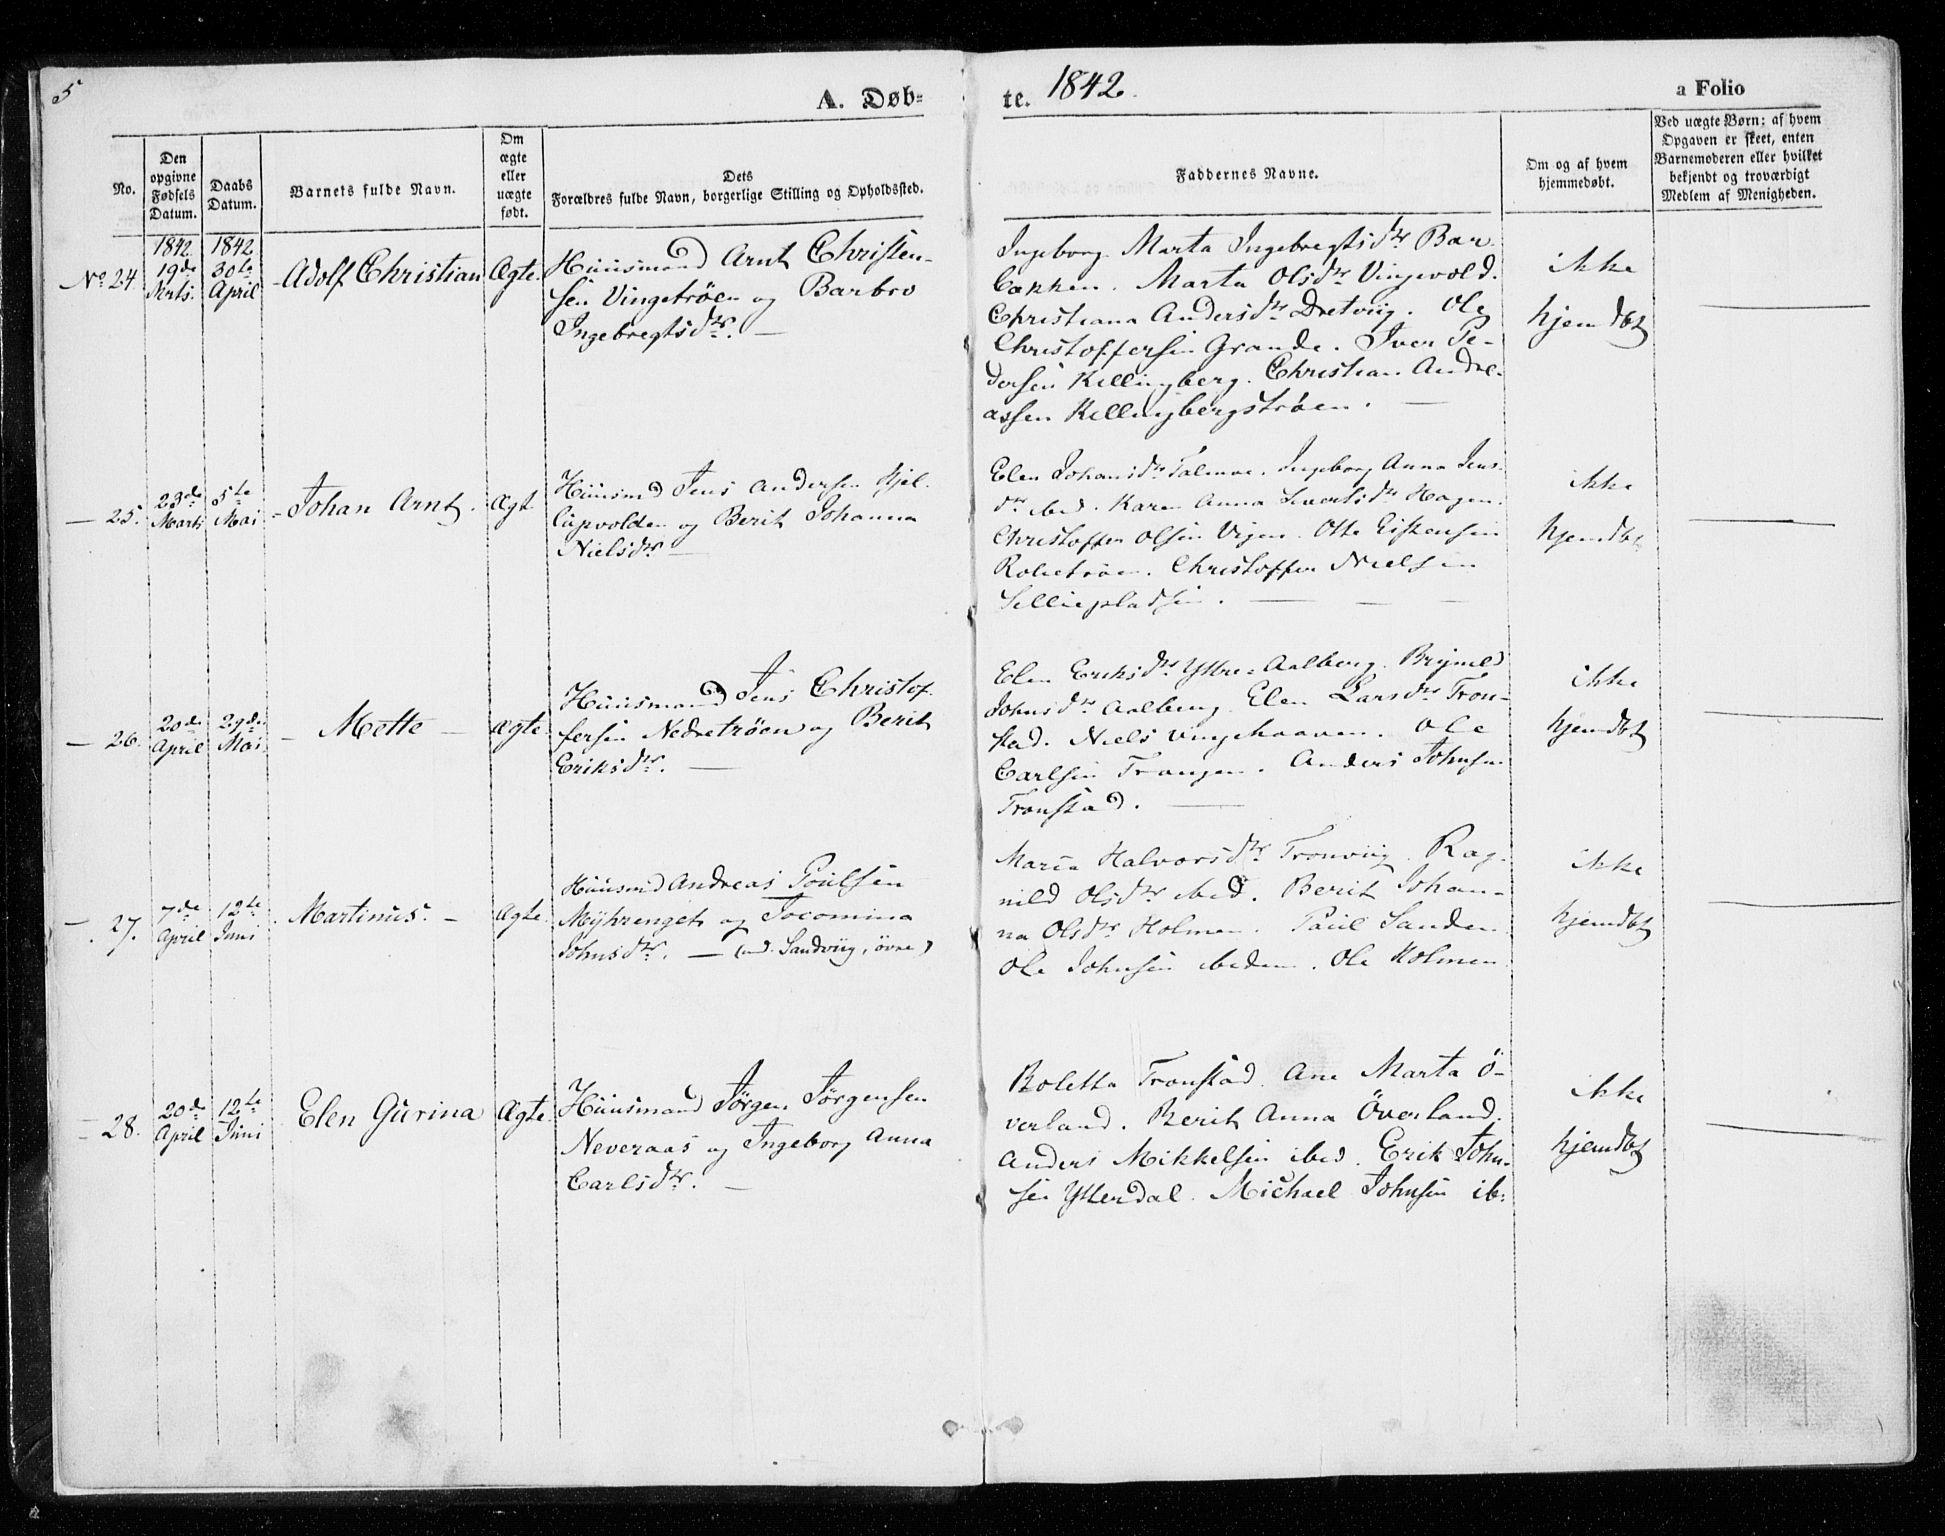 5
A. Døb-
te. 1842.
a Folio
No.
Den opgivne Fødsels Datum.
Daabs Datum.
Barnets fulde Navn.
Om ægte eller uægte født.
Dets
Forældres fulde Navn, borgerlige Stilling og Opholdssted.
Faddernes Navne.
Om og af hvem hjemmedøbt.
Ved uægte Børn; af hvem Opgaven er skeet, enten Barnemoderen eller hvilket bekjendt og troværdigt Medlem af Menigheden.
No 24
1842 19de
1842 30te April
Adolf Christian
Ægte
Huusmand Arnt Christen-
sen Vingetrøen og Barbro
Ingebregtsdtr. —
Ingeborg Marta Ingebregtsdtr Bar
Marta Olsdtr Vingvold.
Christiana Andersdtr Dretviig. Ole
Christoffersen Grande. Iver Pe-
dersen Killingberg. Christian Andre-
assen Killingbergstrøen. —
ikke
hjemdbt
— 25.
23de Marts
5te Mai
Johan Arnt.
Ægt
Huusmd Jens Andersen
og Berit Johanna
Nielsdtr —
Elen Johansdtr Ingeborg Anna Jens-
dtr ibid. Karen Anna Sivertsdtr Hagen.
Christoffer Olsen Vigen. Otte
Christoffer Nielsen
— — —
ikke
hjemdbt
— 26.
20de April
29de Mai
— Mette —
Ægte
Huusmand Jens Christof-
fersen Nedretrøen og Berit
Eriksdtr. —
Elen Eriksdtr Yttre-Aalberg.
Johnsdtr Aalberg. Elen Larsdtr Tron-
stad. Niels Ole
Carlsen Trangen. Anders Johnsen
Tronstad. —
ikke
hjemdbt
— 27.
7de April
12te Juni
Martinus. —
Ægte
Huusmd Andreas Poulsen
Myhrenget og Jocomina
Johnsdtr. — (und. Sandviig, övre)
Maria Halvorsdtr Tronviig. Rag-
nild Olsdtr ibid. Berit Johan-
na Olsdtr Holmen. Paul Sanden
Ole Johnsen ibidem. Ole Holmen
ikke
hjemdbt
— 28.
20de April
12te Juni
Elen Gurina
Ægte
Huusmand Jørgen Jørgensen
Neveraas og Ingeborg Anna
Carlsdtr. —
Boletta Tronstad. Ane Marta Ö-
verland. Berit Anna Överland.
Anders Mikkelsen ibid. Erik John-
sen Ytterdal. Michael Johnsen ib:
ikke
hjemdbt